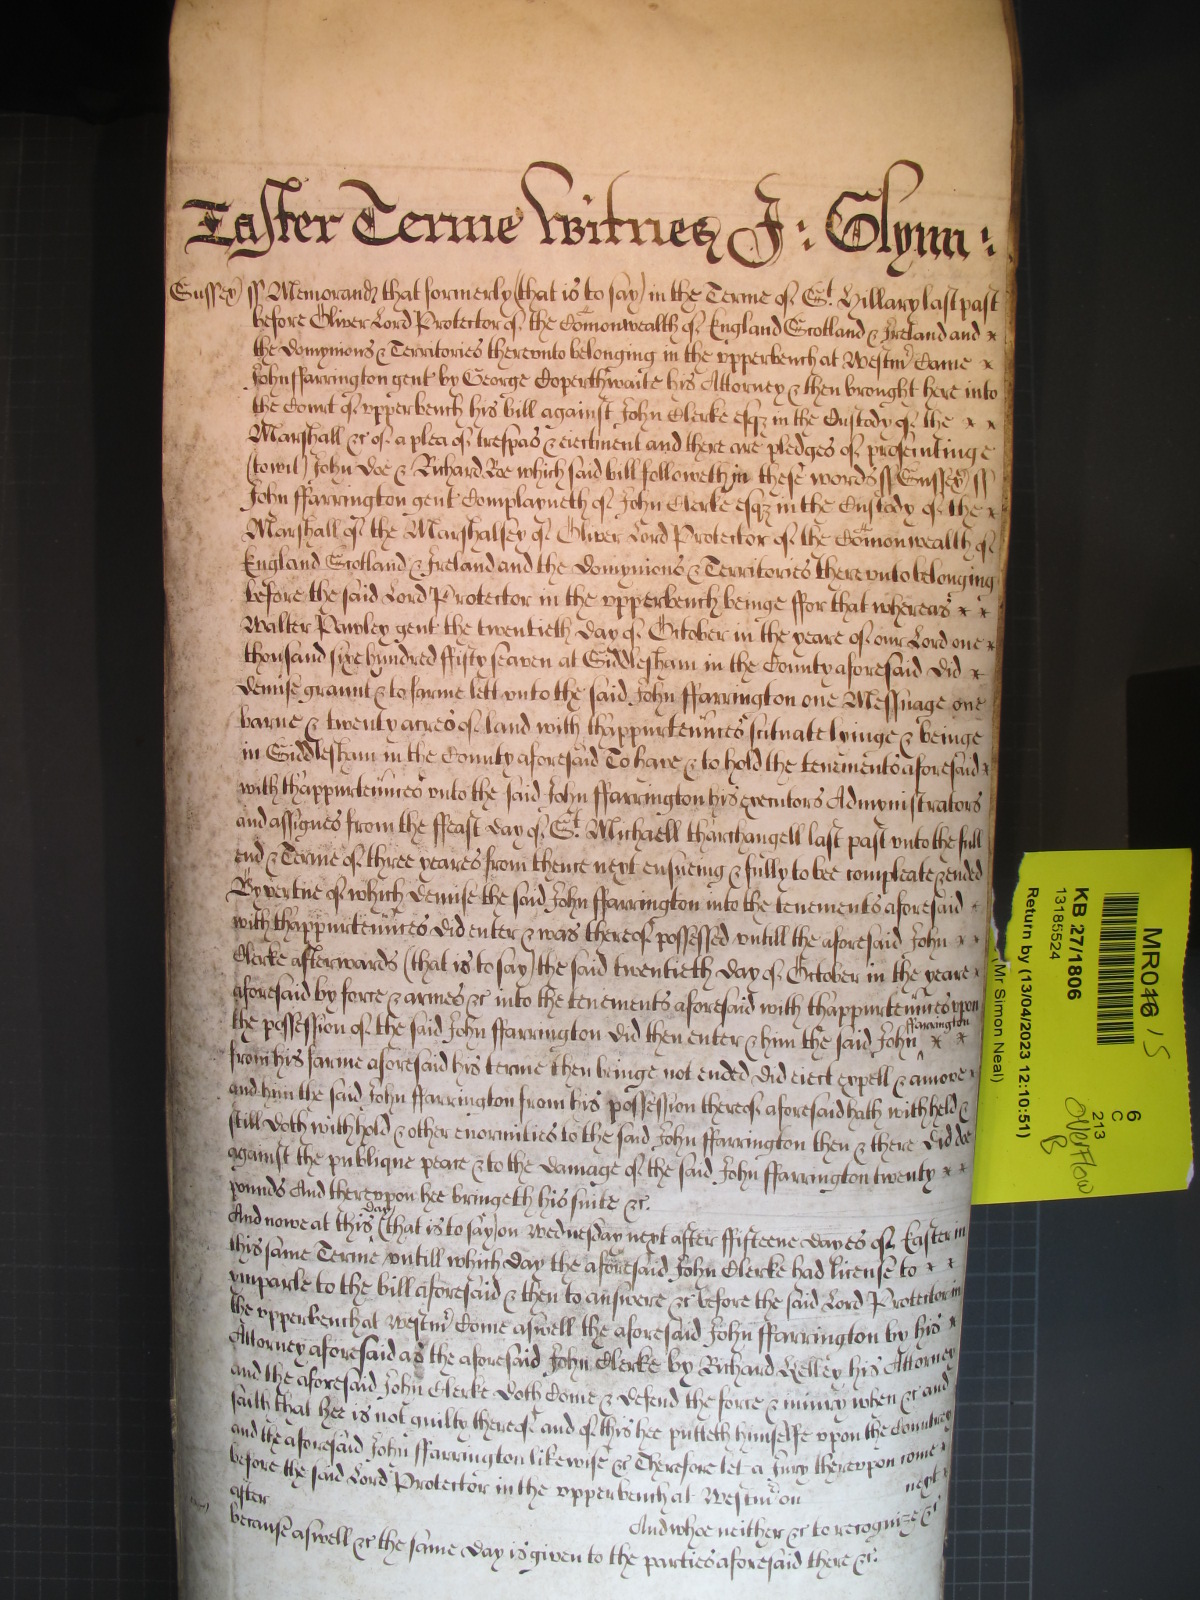 Easter Terme Witnes J: Glynn:
Sussex ss Memorand that formerly (that is to say) in the Terme of St. Hillary last past
before Oliver Lord Protector of the Comonwealth of England Scotland & Ireland and x
the Domynions & Territories therevnto belonging in the vpperbench at Westm Came x
John ffarrington gent by George Coperthwaite his Attorney & then brought here into
the Court of vpperbench his bill against John Clerke esqz in the Custody of the x x
Marshall &c of a plea of trespas & eiectment and there are pledges of prosecutinge
(to wit) John Doe & Richard Roe which said bill followeth in these words ss Sussex ss
John ffarrington gent Complayneth of John Clerke esqz in the Custody of the x
Marshall of the Marshalsey of Oliver Lord Protector of the Comonwealth of
England Scotland & Ireland and the Domynions & Territories therevnto belonging
before the said Lord Protector in the vpperbench beinge ffor that whereas x x
Walter Pawley gent the twentieth day of October in the yeare of our Lord one x
thousand sixe hundred ffifty seaven at Siddlesham in the County aforesaid did x
demise graunt & to farme lett vnto the said John ffarrington one Messuage one
barne & twenty acres of land with thappurtennces scituate lyinge & beinge
in Siddlesham in the County aforesaid To have & to hold the tenements aforesaid x
with thappurtennces vnto the said John ffarrington his executors Admynistrators
and assignes from the ffeast day of St. Michaell tharchangell last past vnto the full
end & Terme of three yeares from thence next ensueing & fully to bee compleate & ended
By vertue of which demise the said John ffarrington into the tenements aforesaid x
with thappurtennces did enter & was thereof possessed vntill the aforesaid John x x
Clerke afterwards (that is to say) the said twentieth day of October in the yeare x
aforesaid by force & armes &c into the tenements aforesaid with thappurtennces vpon
the possession of the said John ffarrington did then enter & him the said John ^ffarrington x x
from his farme aforesaid his terme then beinge not ended did eiect expell & amove x
and him the said John ffarrington from his possession thereof aforesaid hath withheld &
still doth withhold & other enormities to the said John ffarrington then & there did doe
against the publique peace & to the damage of the said John ffarrington twenty x x
pounds And therevpon hee bringeth his suite &c.
And nowe at this day (that is to say) on Wednesday next after ffifteene dayes of Easter in
this same Terme vntill which day the aforesaid John Clerke had license to x x
ymparle to the bill aforesaid & then to answere &c before the said Lord Protector in
the vpperbench at Westm Come aswell the aforesaid John ffarrington by his x
Attorney aforesaid as the aforesaid John Clerke by Richard Kelley his Attorney
and the aforesaid John Clerke doth Come & defend the force & iniury when &c and
saith that hee is not guilty thereof and of this hee putteth himselfe vpon the Country
and the aforesaid John ffarrington likewise &c Therefore let a Jury therevpon come x
before the said Lord Protector in the vpperbench at Westm on next x
after And whoe neither &c to recognize &c
because aswell &c the same day is given to the parties aforesaid there &c.
MR046 / 5
KB 27/1806
13185524
Return by (13/04/2023 12:10:51)
(Mr Simon Neal)
6
C
213
Overflow
B